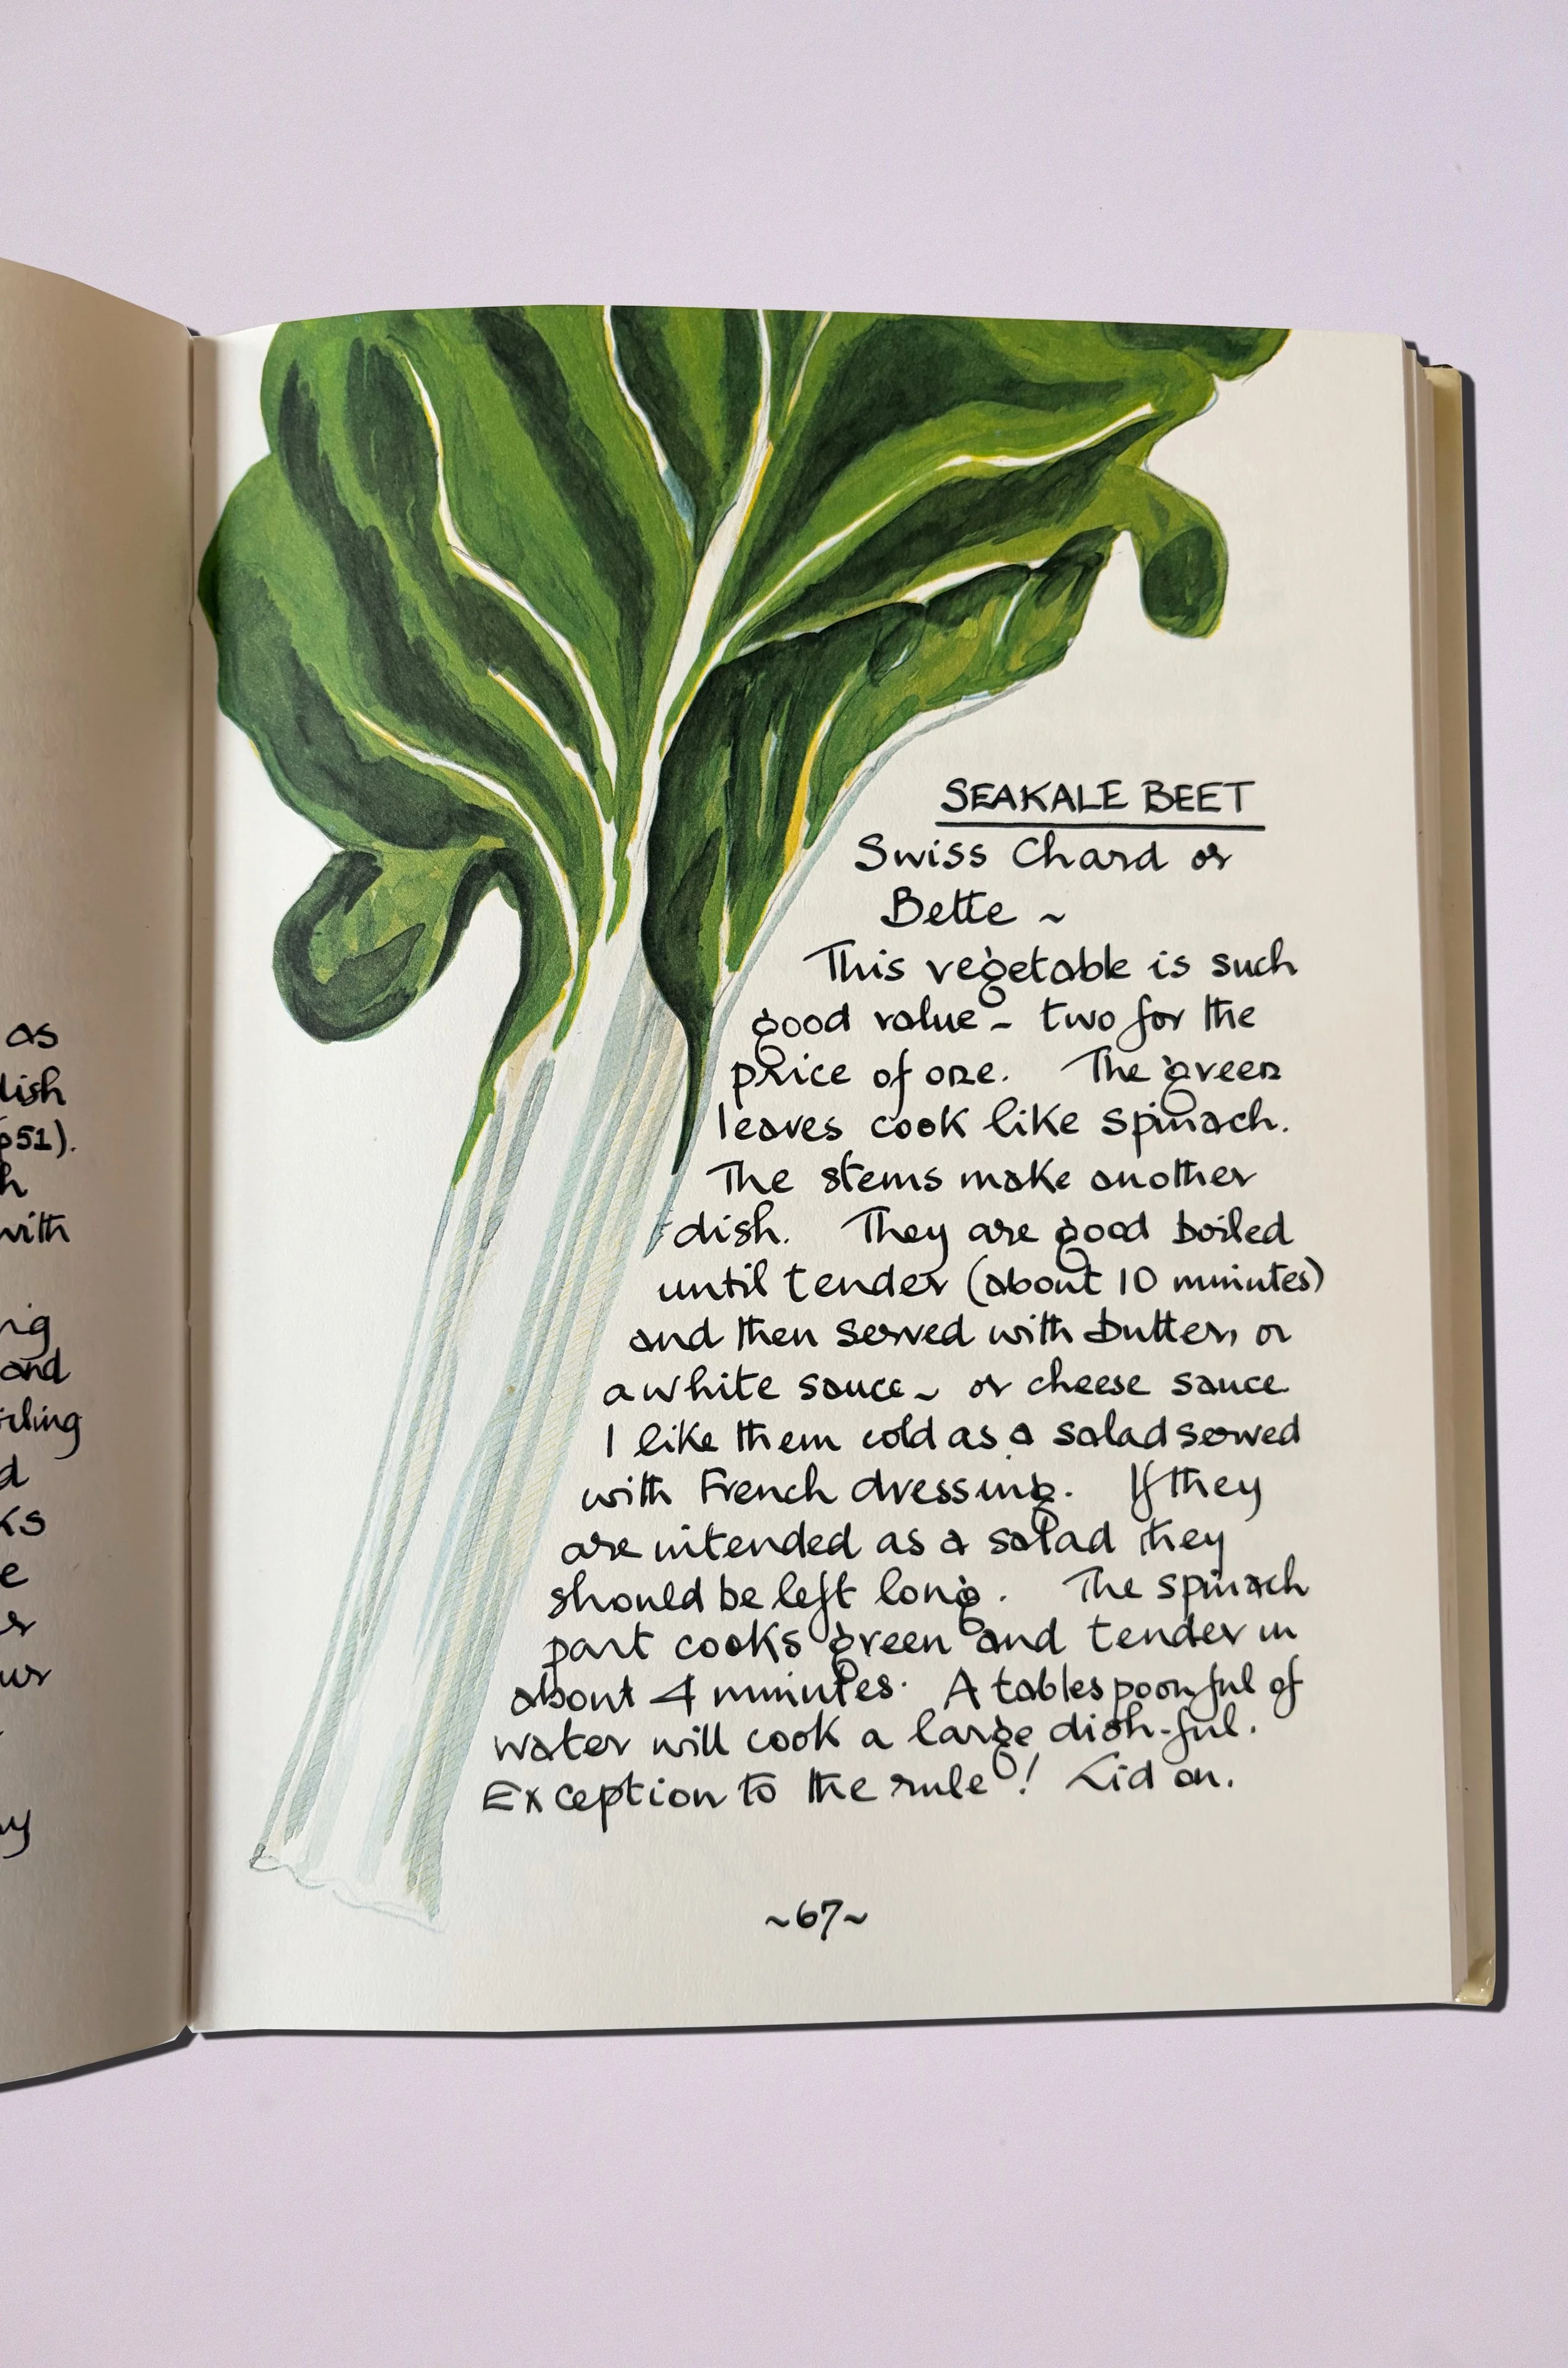 as
lish
p51).
h
with
ng
and
iling
d
ks
e
er
our
ny
SEAKALE BEET
Swiss Chard or
Bette ~
This vegetable is such
good value ~ two for the
price of one. The green
leaves cook like spinach.
The stems make another
dish. They are good boiled
until tender (about 10 minutes)
and then served with butter, or
a white sauce ~ or cheese sauce
I like them cold as a salad served
with French dressing. If they
are intended as a salad they
should be left long. The spinach
part cooks green and tender in
about 4 minutes. A tablespoonful of
water will cook a large dish-ful.
Exception to the rule! Lid on.
~67~